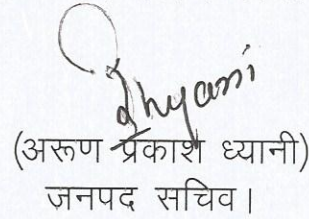 Dhyani
(अरूण प्रकाश ध्यानी)
जनपद सचिव।